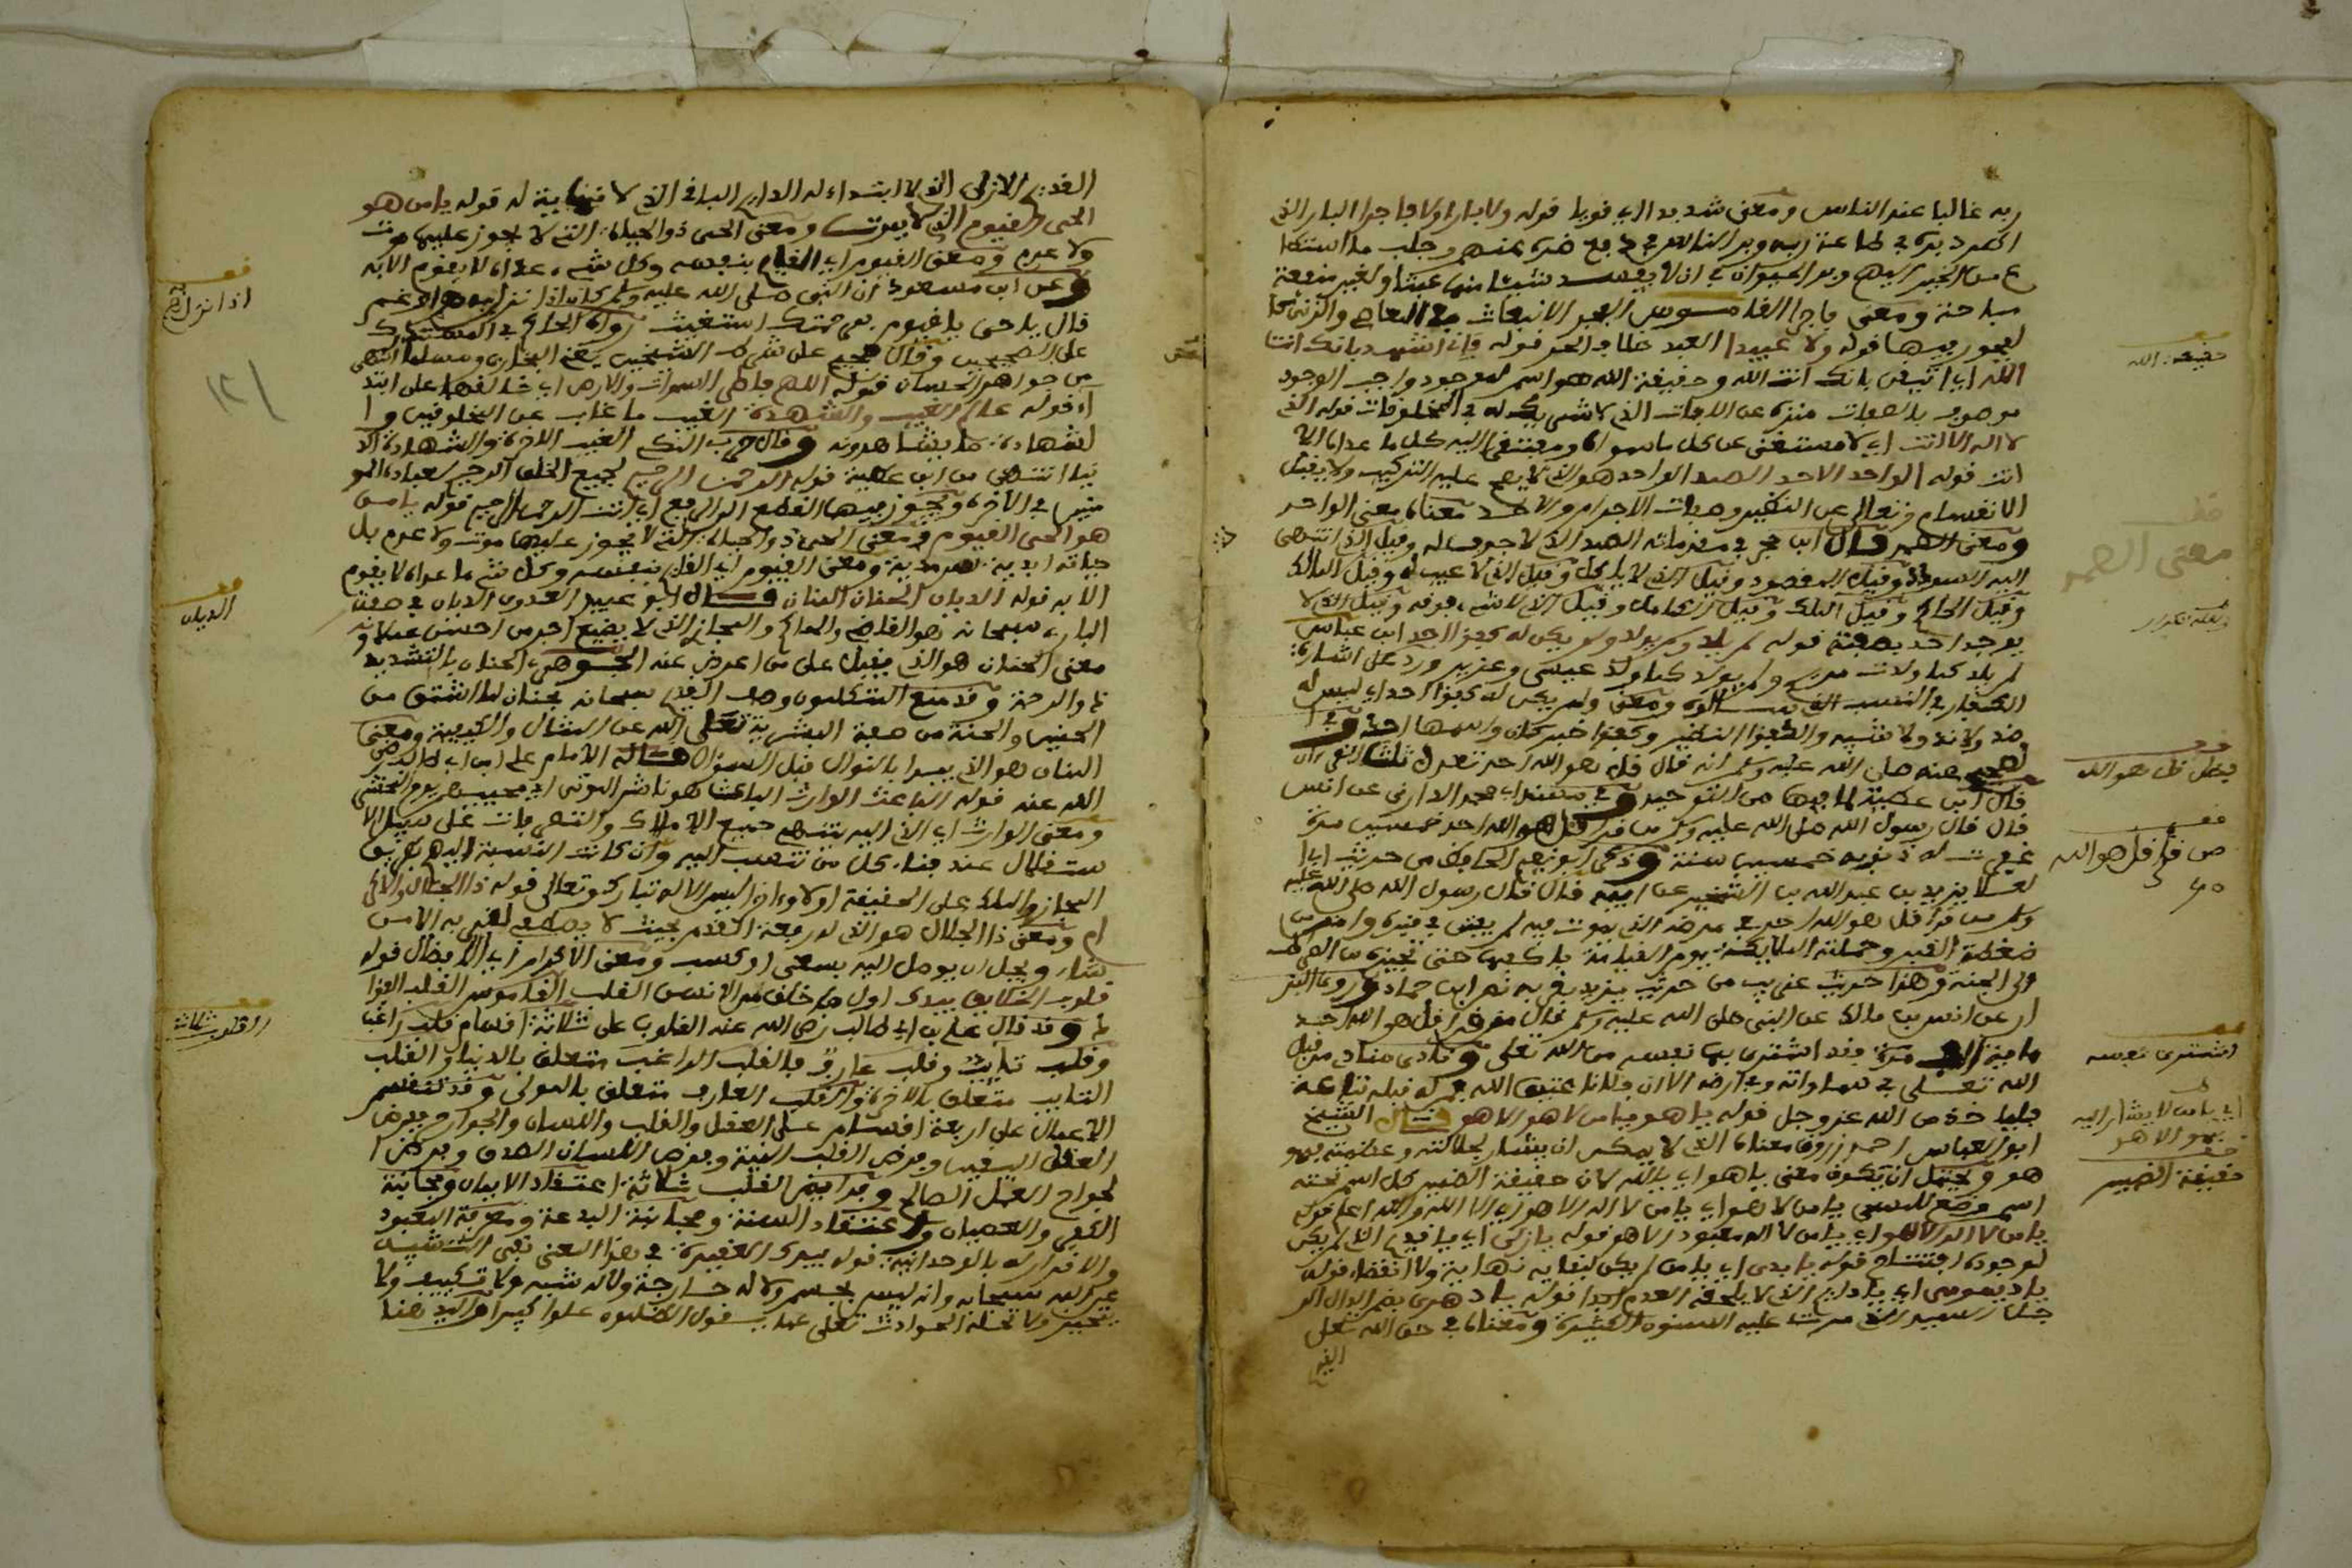 ربه غالبا عند الناس ومعنى شديدا اي قويا قوله ولا بارا ولا فاجرا البار الذي
في طاعة ربه وبر الناس في دفع ضره عنهم وجلب ما استطا
ع من الخير اليهم وبر الحيوان في ان لا يفسد شيئا منها عبثا ولغير منفعة
مباحة ومعنى فاجرا القاموس الفجر الانبعاث في المعاصي والزنى
قوله ولا عبيدا العبيد خلاف الحر قوله فاني اشهد بانك انت
الله اي اتيقن بانك انت الله وحقيقة الله هو اسم لموجود واجب الوجود
موصوف بالصفات منزه عن الافات الذي لا شريك له في المخلوقات قوله الذي
لا اله الا انت اي لا مستغنى عن كل ما سواه ومفتقرا اليه كل ما عداه الا
انت قوله الواحد الاحد الصمد الواحد هو الذي لا يصح عليه التركيب ولا يقبل
الانقسام وتعالى عن التكير وصفات الاجرام والاحد معناه معنى الواحد
ومعنى الصمد قال ابن حجر في مقدماته الصمد الذي لا جوف له وقيل الذي انتهى
اليه السودد وقيل المقصود وقيل الذي لا ياكل وقيل الذي لا عيب له وقيل المالك
وقيل الحاكم وقيل الملك وقيل الكامل وقيل الذي لا شيء فوقه وقيل الذي لا
يوجد احد بصفته قوله لم يلد ولم يولد ولم يكن له كفؤا احد ابن عباس
لم يلد كما ولدت مريم ولم يولد كما ولد عيسى وعزير ورد على اشارة
الكفار في النسب الذي سالوه ومعنى ولم يكن له كفؤا احد اي ليس له
ضد ولا ند ولا شبيه والكفؤا النظير وكفؤا خبر كان واسمها احد وفي ا
لصحيح عنه صلى الله عليه وسلم انه قال قل هو الله احد تعدل ثلث القرءان
قال ابن عطية لما فيها من التوحيد وفي مسند ابي محمد الدارمي عن انس
قال قال رسول الله صلى الله عليه وسلم من قرا قل هو الله احد خمسين مرة
غفرت له ذنوبه خمسين سنة وذكر ابو نعيم الحافظ من حديث ابي ا
لعلا يزيد بن عبد الله بن الشخير عن ابيه قال قال رسول الله صلى الله عليه
وسلم من قرا قل هو الله احد في مرضه الذي يموت فيه لم يفتن في قبره وامن من
ضغطة القبر وحملته الملايكة يوم القيامة باكفها حتى تجيزه من الصراط
الى الجنة وهذا حديث غريب من حديث يزيد تفرد به نصر ابن حماد وروى البز
ار عن انس بن مالك عن النبي صلى الله عليه وسلم قال من قرا قل هو الله احد
ماية الف مرة فقد اشترى بها نفسه من الله تعلى ونادى مناد من قبل
الله تعلى في سماواته وفي ارضه الا ان فلانا عتيق الله فمن له قبله تباعة
فلياخذه من الله عز وجل قوله يا هو يا من لا هو الا هو قال الشيخ
ابو العباس احمد زروق معناه الذي لا يمكن ان يشار لجلالته وعظمته فهو
هو ويحتمل ان يكون معنى يا هو اي يا الله لان حقيقة الضمير كل اسم تحته
اسم وضع للمسمى يا من لا هو اي يا من لا اله الا هو اي الا الله والله اعلم قوله
يا من لا اله الا هو اي يا من لا اله معبود الا هو قوله يا ازلي اي يا قديم الذي لم يكن
لوجوده افتتاح قوله يا ابدي اي يا من لم يكن لبقايه نهاية ولا انقضاء قوله
يا ديمومي اي يا دايم الذي لا يلحقه العدم ابدا قوله يا دهري بضم الدال
السيد الذي مرت عليه السنون الكثيرة ومعناه في حق الله تعلى
القديم
حقيقة الله
معنى الصمد
فضل قل هو الله
من قرا قل هو الله
اشترى نفسه
اي يا من لا يشار اليه
بهو الا هو
حقيقة الضمير
القديم الازلي الذي لا ابتداء له الدايم الباقي الذي لا نهاية له قوله يا من هو
الحي القيوم الذي لا يموت ومعنى الحي ذو الحياة التي لا يجوز عليها موت
ولا عدم ومعنى القيوم اي القايم بنفسه وكل شيء عداه لا يقوم الا به
وعن ابن مسعود ان النبي صلى الله عليه وسلم كان اذا نزل به هم او غم
قال يا حي يا قيوم برحمتك استغيث رواه الحاكم في المستدرك
على الصحيحين وقال صحيح على شرط الشيخين يعني البخاري ومسلما انتهى
من جواهر الحسان قوله اللهم فاطر السموات والارض اي خالقها على ابتد
اء قوله عالم الغيب والشهادة الغيب ما غاب عن المخلوقين وا
لشهادة ما يشاهدونه وقال حزب النكر الغيب الاخرة والشهادة الد
نيا انتهى من ابن عطية قوله الرحمن الرحيم لجميع الخلق الرحيم لعباده المو
منين في الاخرة ويجوز فيها القطع الى الرفع اي انت الرحمان الرحيم قوله يا من
هو الحي القيوم ومعنى الحي ذو الحياة التي لا يجوز عليها موت ولا عدم بل
حياته ابدية سرمدية ومعنى القيوم اي القايم بنفسه وكل شيء ما عداه لا يقوم
الا به قوله الديان الحنان المنان قال ابو عبيد الهروي الديان في صفة
البارى سبحانه هو القاضي والحاكم والمجازي الذي لا يضيع اجر من احسن عملا و
معنى الحنان هو الذي يقبل على من اعرض عنه الجوهري الحنان بالتشديد
ذو الرحمة وقد منع المتكلمون وصف القديم سبحانه بحنان لما اشتق من
الحنين والحنة من صفة البشرية تعلى الله عن المثال والكيفية ومعنى
المنان هو الذي يبدا بالنوال قبل السؤال قاله الامام علي ابن ابي طالب رضي
الله عنه قوله الباعث الوارث الباعث هو ناشر الموتى اي محييهم يوم الحشر
ومعنى الوارث اي الذي اليه تنتهي جميع الاملاك
عند فناء كل من تنسب اليه وان كانت النسبة اليهم بطريق
المجاز والملك على الحقيقة اولا وءاخرا ليس الا له تبارك وتعالى قوله ذا الجلال والاكر
ام ومعنى ذا الجلال هو الذي له رفعة القدر بحيث لا يصل لقربه الا من
شاء ويجل ان يوصل اليه بسعي او كسب ومعنى الاكرام اي الافضال قوله
قلوب الخلايق بيدك القلب القاموس القلب الفؤا
د وقد قال علي بن ابي طالب رضي الله عنه القلوب على ثلاثة اقسام قلب راغب
وقلب تايب وقلب عارف فالقلب الراغب متعلق بالدنيا والقلب
التايب متعلق بالاخرة والقلب العارف متعلق بالمولى وقد تنقسم
الاعمال على اربعة اقسام على العقل والقلب واللسان والجوارح ففرض
العقل اليقين وفرض القلب النية وفرض اللسان الصدق وفرض ا
لجوارح العمل الصالح وفرايض القلب ثلاثة اعتقاد الايمان ومجانبة
الكفر والعصيان واعتقاد السنة ومجانبة البدعة ومعرفة المعبود
والاقرار له بالوحدانية قوله بيدك في هذا المعنى نفي التشبيه
عن الله سبحانه وانه ليس بجسم ولا له جارحة ولا له شبه ولا تكييف ولا
تحيز ولا تحله الحوادث تعلى عما يقول الظلمون علوا كبيرا
اذا نزل هم
الديان
القلوب ثلاثة